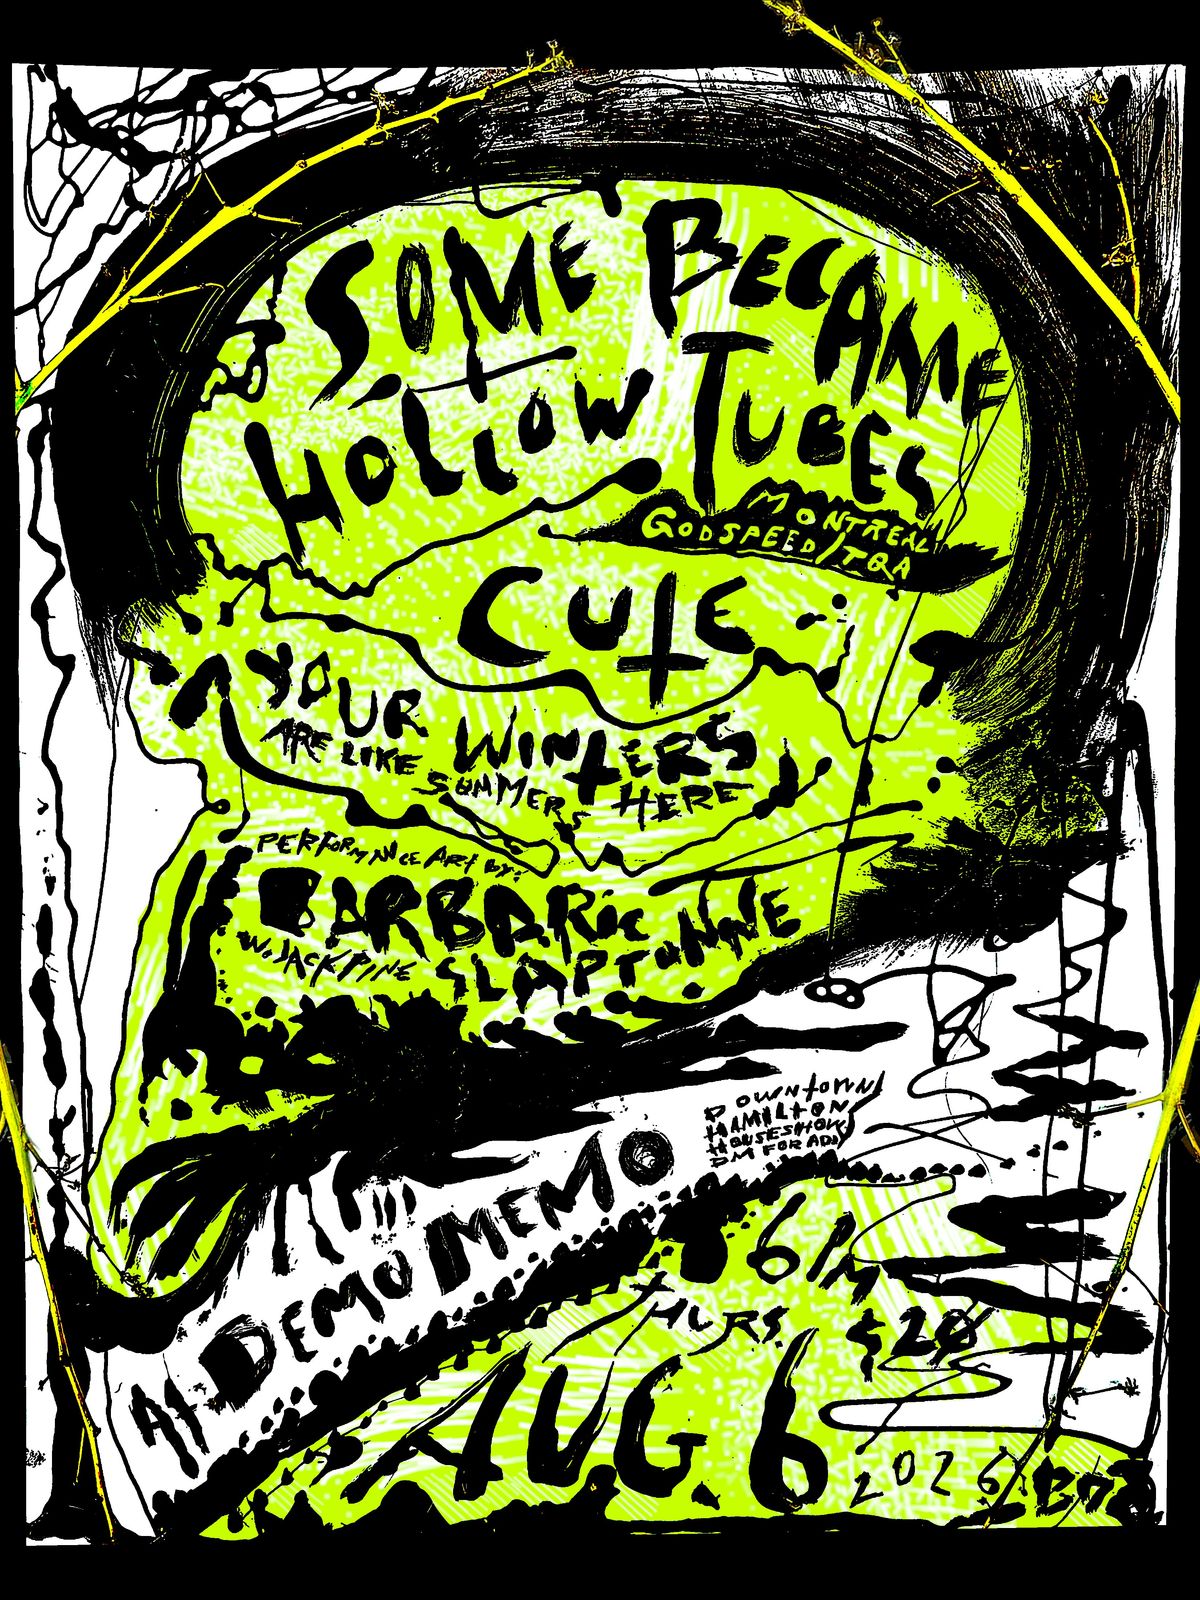 SOME BECAME
HOLLOW TUBES
MONTREAL
GODSPEED/TQA
CUTE
YOUR WINTERS
ARE LIKE SUMMERS HERE
PERFORMNCE ART BY:
BARBARIC
W. JACK PINE SLAPTONNE
DOWNTOWN
HAMILTON
HOUSESHOW
DM FOR ADD
At DEMO MEMO
6PM
THURS. $20
AUG. 6
2026